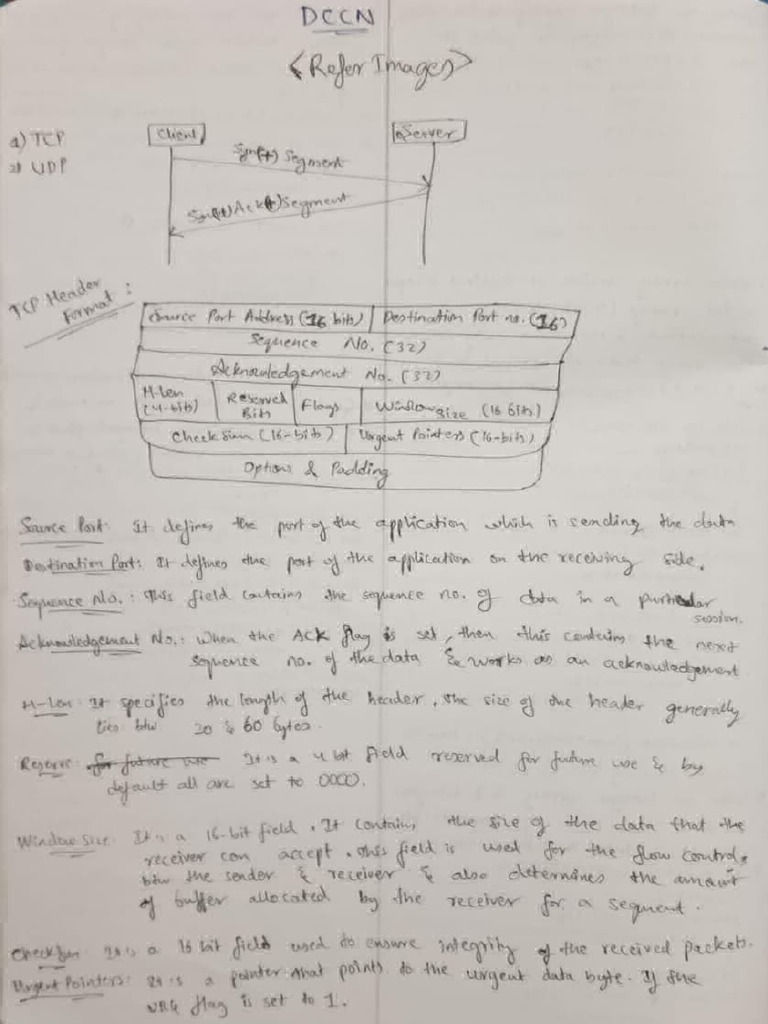 DCCN
<Refer Images>
a) TCP
2) UDP
Client
Server
Syn(+) Segment
Syn(+)Ack(+)Segment
TCP Header Format :
Source Port Address (16 bits) Destination Port no. (16)
Sequence No. (32)
Acknowledgement No. (32)
H-Len (4-bits) Reserved Bits Flags Window Size (16 bits)
Check Sum (16-bits) Urgent Pointers (16-bits)
Options & Padding
Source Port: It defines the port of the application which is sending the data
Destination Port: It defines the port of the application on the receiving side.
Sequence No.: This field contains the sequence no. of data in a particular
session.
Acknowledgement No.: When the ACK flag is set, then this contains the next
sequence no. of the data & works as an acknowledgement.
H-Len: It specifies the length of the header, the size of the header generally
lies btw 20 & 60 bytes.
Reserve: for future use It is a 4 bit field reserved for future use & by
default all are set to 0000.
Window Size: It is a 16-bit field. It contains the size of the data that the
receiver can accept. This field is used for the flow control
btw the sender & receiver & also determines the amount
of buffer allocated by the receiver for a segment.
Checksum: It is a 16 bit field used to ensure integrity of the received packets.
Urgent Pointers: It is a pointer that points to the urgent data byte. If the
URG flag is set to 1.